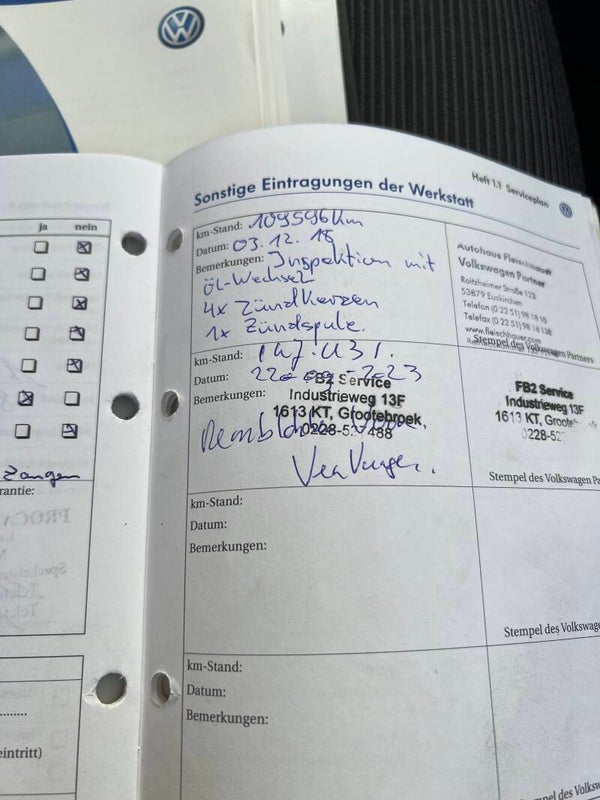 Heft 1.1 Serviceplan
Sonstige Eintragungen der Werkstatt
ja nein
km-Stand: 109596 km
Datum: 03.12.18
Bemerkungen: Inspektion mit
Öl-Wechsel
4x Zündkerzen
1x Zündspule
Autohaus Fleischhauer
Volkswagen Partner
Roitzheimer Straße 123
53879 Euskirchen
Telefon (0 22 51) 98 18 10
Telefax (0 22 51) 98 18 138
www.fleischhauer.com
Stempel des Volkswagen Partners
km-Stand: 147.031.
Datum: 22-09-2023
Bemerkungen:
FB2 Service
Industrieweg 13F
1613 KT, Grootebroek,
0228-5 488
Vervangen.
FB2 Service
Industrieweg 13F
1613 KT, Grootebr
0228-52
Stempel des Volkswagen Pa
km-Stand:
Datum:
Bemerkungen:
Stempel des Volkswage
km-Stand:
Datum:
Bemerkungen:
mpel des Volksw
Zangen
rantie:
eintritt)